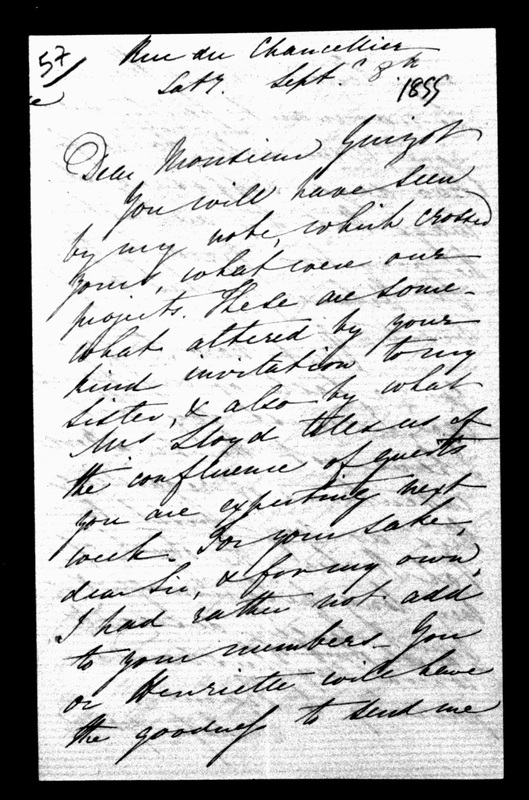 57
Rue du Chancellier
Saty. Sept. 8th
1855
Dear Monsieur Guizot
You will have seen
by my note, which crossed
yours, what were our
projects. These are some-
what altered by your
kind invitation to my
sister, & also by what
Mrs Lloyd tells us of
the confluence of guests
you are expecting next
week. For your sake,
dear Sir, & for my own,
I had rather not add
to your numbers. You
or Henriette will have
the goodness to send me